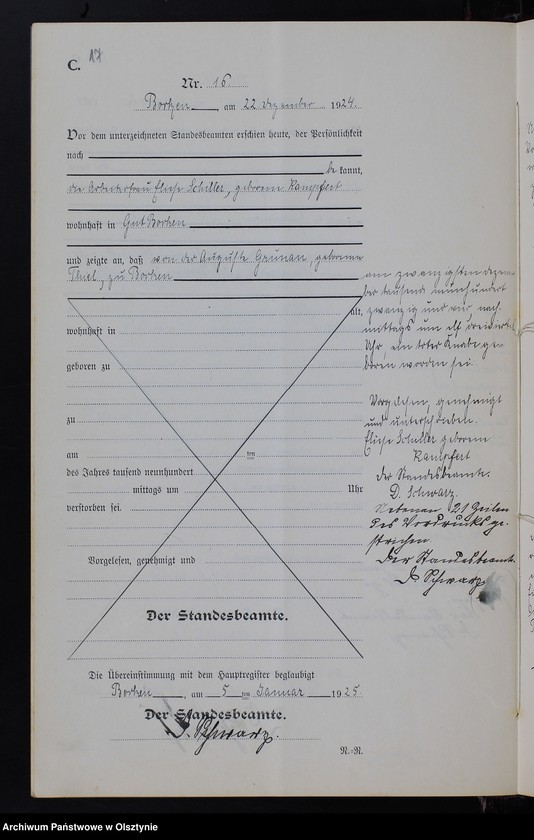 C. 17
Nr. 16
Borken, am 22 Dezember 1924.
Vor dem unterzeichneten Standesbeamten erschien heute, der Persönlichkeit
nach
be kannt,
die Arbeiterfrau Eliese Schiller, geborene Kampfert
wohnhaft in Gut Borken
und zeigte an, daß von der Auguste Grunau, geborene
Thiel, zu Borken
alt,
wohnhaft in
geboren zu
zu
am ten
des Jahres tausend neunhundert
mittags um Uhr
verstorben sei.
Vorgelesen, genehmigt und
Der Standesbeamte.
am zwanzigsten Dezem-
ber tausend neunhundert
zwanzig und vier nach-
mittags um elf dreiviertel
Uhr, ein toter Knabe ge-
boren worden sei.
Vorgelesen, genehmigt
und unterschrieben.
Eliese Schiller geborene
Kampfert
Der Standesbeamte.
D. Schwarz.
Nebenan 21 Zeilen
des Vordrucks ge-
strichen.
Der Standesbeamte.
D. Schwarz
Die Übereinstimmung mit dem Hauptregister beglaubigt
Borken, am 5 ten Januar 1925
Der Standesbeamte.
D. Schwarz.
N.-R.
Archiwum Państwowe w Olsztynie